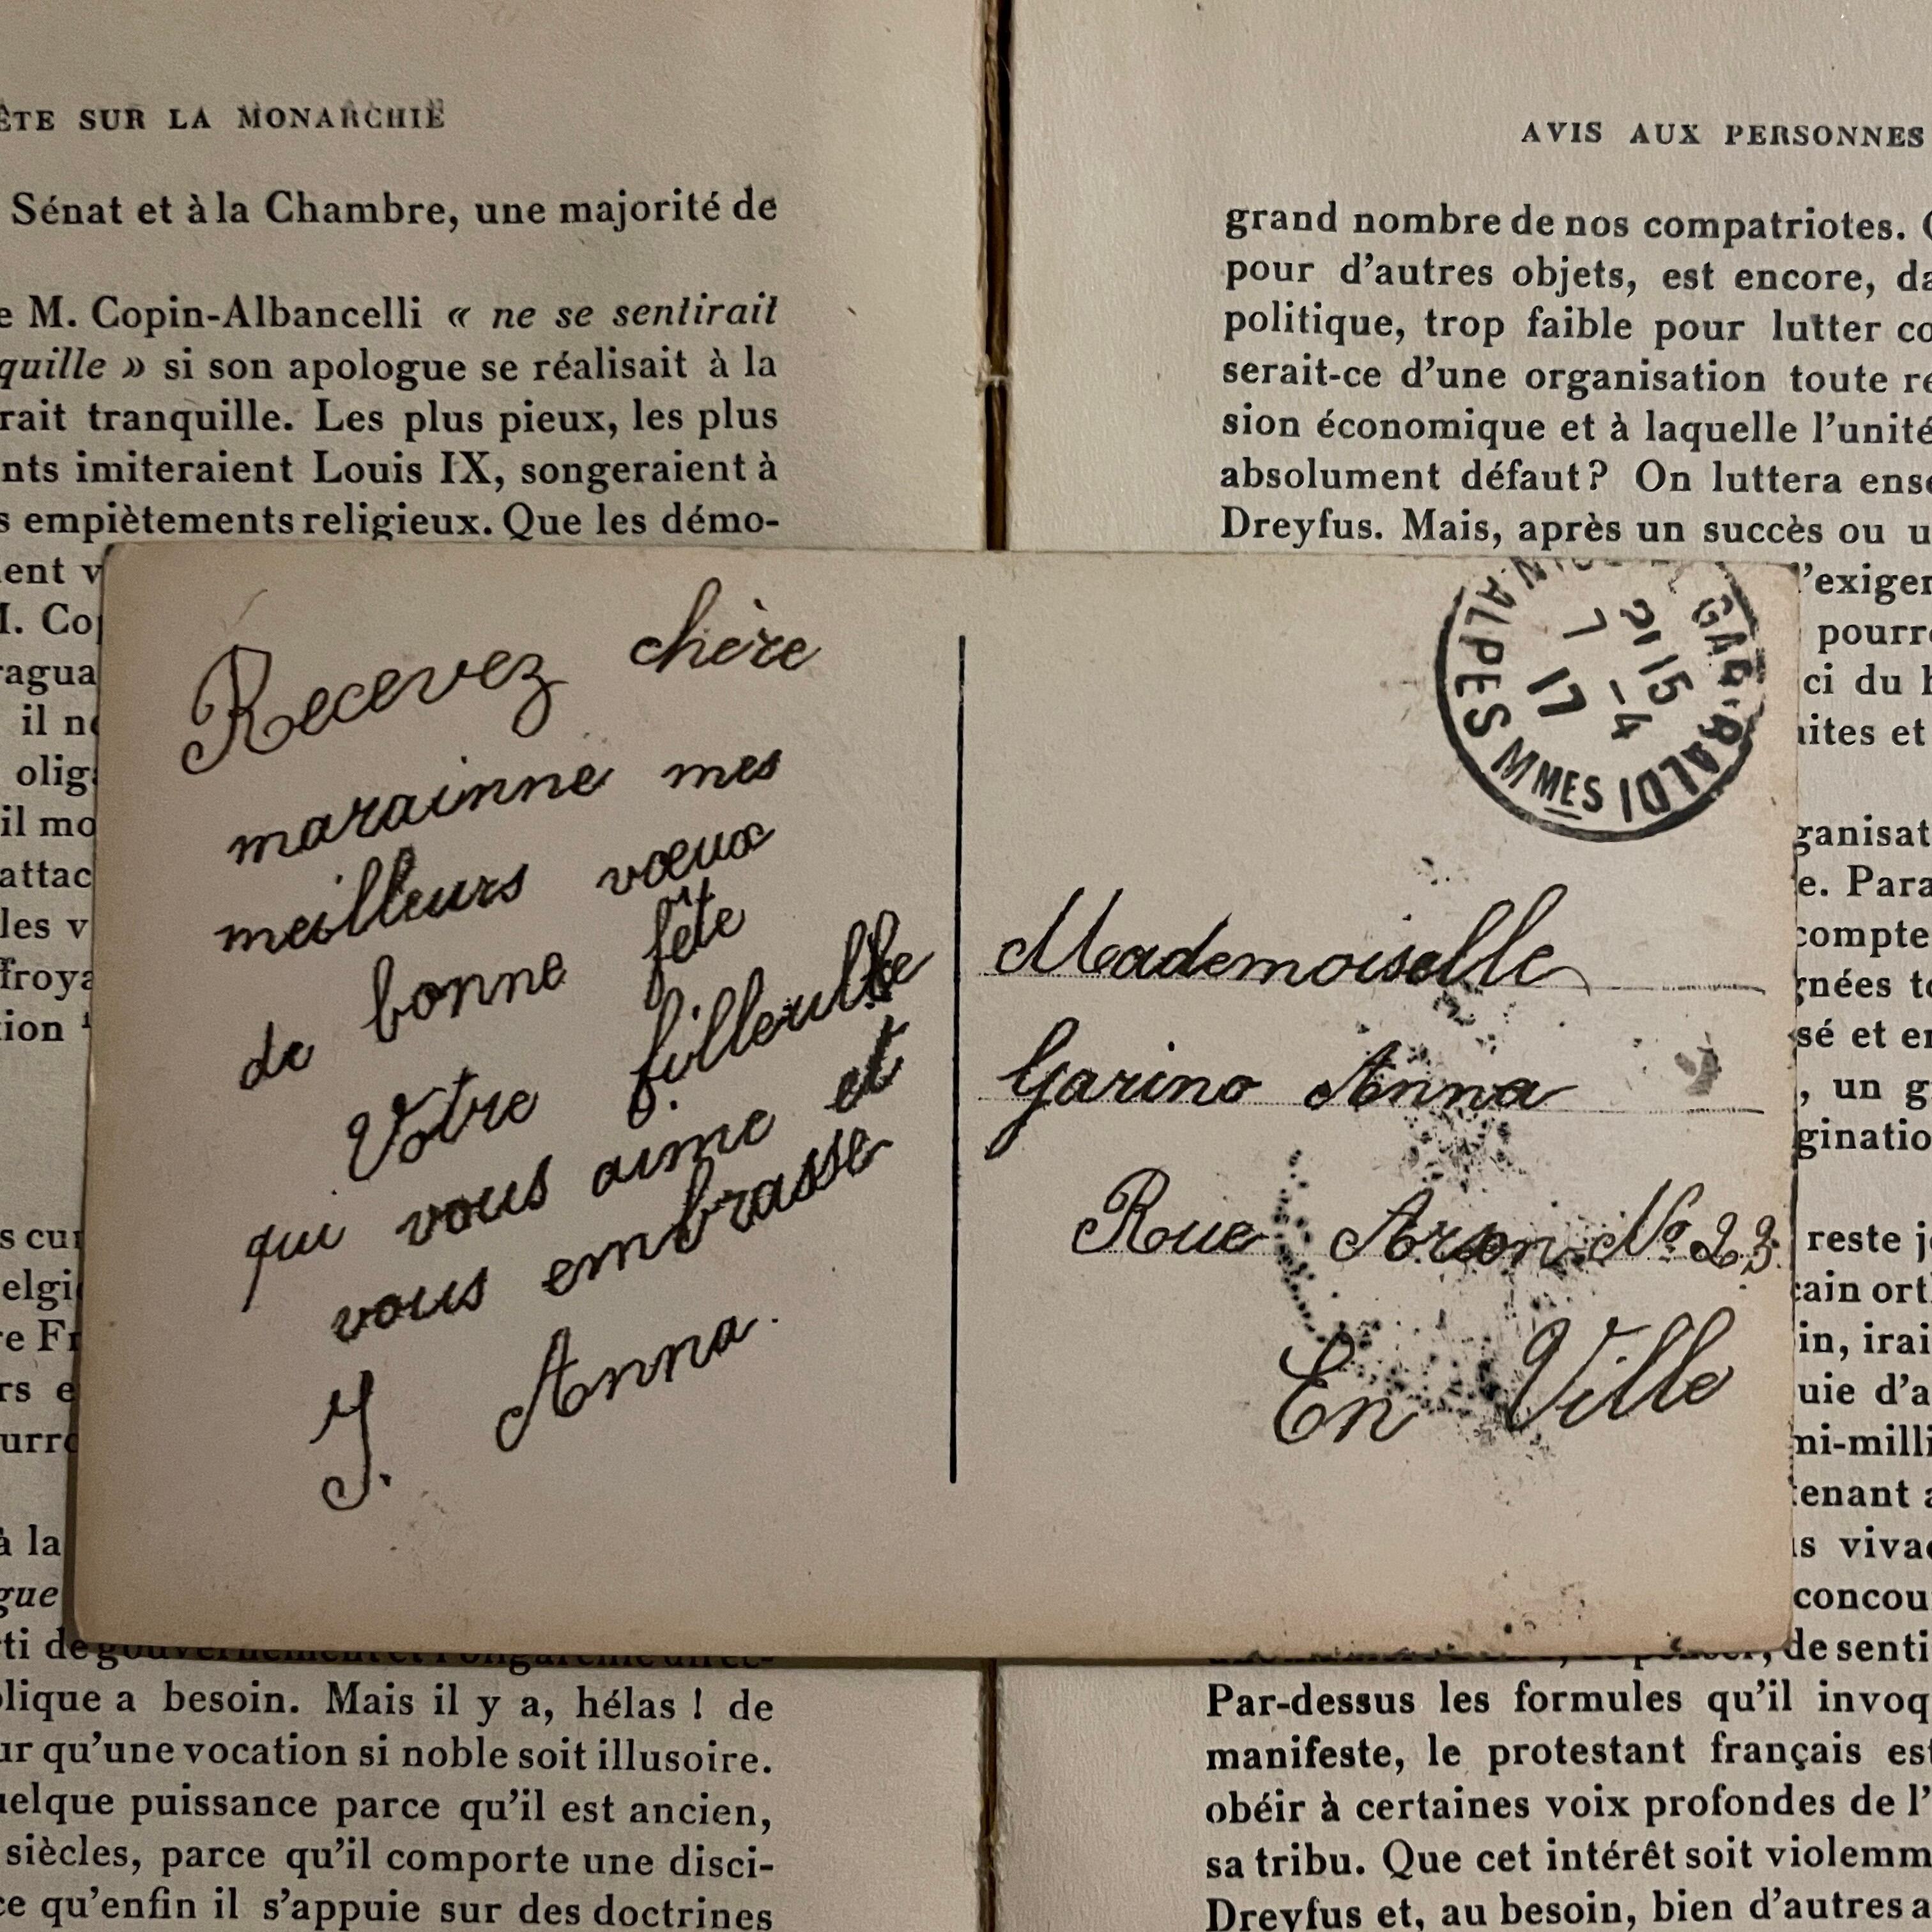 ÊTE SUR LA MONARCHIE
Sénat et à la Chambre, une majorité de
e M. Copin-Albancelli « ne se sentirait
quille » si son apologue se réalisait à la
rait tranquille. Les plus pieux, les plus
nts imiteraient Louis IX, songeraient à
s empiètements religieux. Que les démo-
ent v
M. Cop
ragua
il ne
olig
il mo
attac
les v
ffroya
tion
s cur
elgi
re Fr
rs e
urro
à la
gue
ti de gouvernement et l'oligarchie direc-
blique a besoin. Mais il y a, hélas ! de
ur qu'une vocation si noble soit illusoire.
uelque puissance parce qu'il est ancien,
siècles, parce qu'il comporte une disci-
ce qu'enfin il s'appuie sur des doctrines
Recevez chère
marainne mes
meilleurs vœux
de bonne fête
Votre filleulle
qui vous aime et
vous embrasse
J. Anna.
NICE GARIBALDI
21 15
7 - 4
17
ALPES MMES
Mademoiselle
Garino Anna
Rue Arson No 23.
En Ville
AVIS AUX PERSONNES
grand nombre de nos compatriotes. C
pour d'autres objets, est encore, da
politique, trop faible pour lutter co
serait-ce d'une organisation toute re
sion économique et à laquelle l'unité
absolument défaut? On luttera ense
Dreyfus. Mais, après un succès ou u
l'exiger
pourre
ci du
uites et
ganisat
e. Para
compte
gnées to
sé et en
, un g
ginatio
reste je
cain ort
in, irai
uie d'a
mi-milli
tenant a
s vivac
concou
, de senti
Par-dessus les formules qu'il invoq
manifeste, le protestant français es
obéir à certaines voix profondes de l'
sa tribu. Que cet intérêt soit violemm
Dreyfus et, au besoin, bien d'autres a